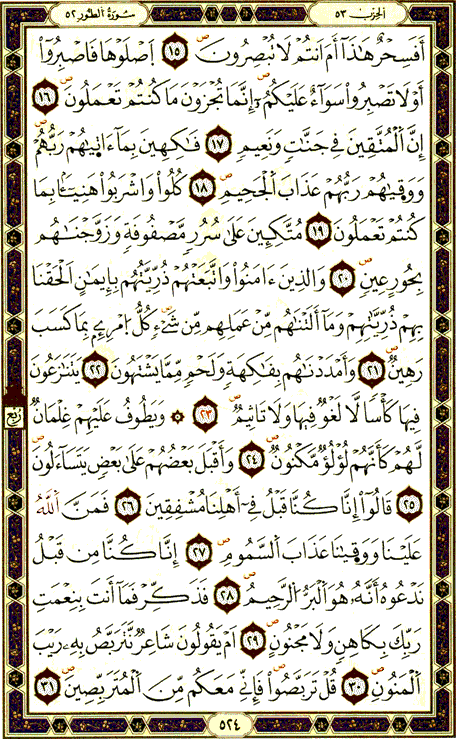 الحزب ٥٣ سورة الطور ٥٢
أَفَسِحْرٌ هَٰذَآ أَمْ أَنتُمْ لَا تُبْصِرُونَ ١٥ ٱصْلَوْهَا فَٱصْبِرُوٓا۟
أَوْ لَا تَصْبِرُوا۟ سَوَآءٌ عَلَيْكُمْ إِنَّمَا تُجْزَوْنَ مَا كُنتُمْ تَعْمَلُونَ ١٦
إِنَّ ٱلْمُتَّقِينَ فِى جَنَّٰتٍ وَنَعِيمٍ ١٧ فَٰكِهِينَ بِمَآ ءَاتَىٰهُمْ رَبُّهُمْ
وَوَقَىٰهُمْ رَبُّهُمْ عَذَابَ ٱلْجَحِيمِ ١٨ كُلُوا۟ وَٱشْرَبُوا۟ هَنِيٓـًٔۢا بِمَا
كُنتُمْ تَعْمَلُونَ ١٩ مُتَّكِـِٔينَ عَلَىٰ سُرُرٍ مَّصْفُوفَةٍ وَزَوَّجْنَٰهُم
بِحُورٍ عِينٍ ٢٠ وَٱلَّذِينَ ءَامَنُوا۟ وَٱتَّبَعَتْهُمْ ذُرِّيَّتُهُم بِإِيمَٰنٍ أَلْحَقْنَا
بِهِمْ ذُرِّيَّتَهُمْ وَمَآ أَلَتْنَٰهُم مِّنْ عَمَلِهِم مِّن شَىْءٍ كُلُّ ٱمْرِئٍۭ بِمَا كَسَبَ
رَهِينٌ ٢١ وَأَمْدَدْنَٰهُم بِفَٰكِهَةٍ وَلَحْمٍ مِّمَّا يَشْتَهُونَ ٢٢ يَتَنَٰزَعُونَ
فِيهَا كَأْسًا لَّا لَغْوٌ فِيهَا وَلَا تَأْثِيمٌ ٢٣ ۞ وَيَطُوفُ عَلَيْهِمْ غِلْمَانٌ
ربع
لَّهُمْ كَأَنَّهُمْ لُؤْلُؤٌ مَّكْنُونٌ ٢٤ وَأَقْبَلَ بَعْضُهُمْ عَلَىٰ بَعْضٍ يَتَسَآءَلُونَ
٢٥ قَالُوٓا۟ إِنَّا كُنَّا قَبْلُ فِىٓ أَهْلِنَا مُشْفِقِينَ ٢٦ فَمَنَّ ٱللَّهُ
عَلَيْنَا وَوَقَىٰنَا عَذَابَ ٱلسَّمُومِ ٢٧ إِنَّا كُنَّا مِن قَبْلُ
نَدْعُوهُ إِنَّهُۥ هُوَ ٱلْبَرُّ ٱلرَّحِيمُ ٢٨ فَذَكِّرْ فَمَآ أَنتَ بِنِعْمَتِ
رَبِّكَ بِكَاهِنٍ وَلَا مَجْنُونٍ ٢٩ أَمْ يَقُولُونَ شَاعِرٌ نَّتَرَبَّصُ بِهِۦ رَيْبَ
ٱلْمَنُونِ ٣٠ قُلْ تَرَبَّصُوا۟ فَإِنِّى مَعَكُم مِّنَ ٱلْمُتَرَبِّصِينَ ٣١
٥٢٤